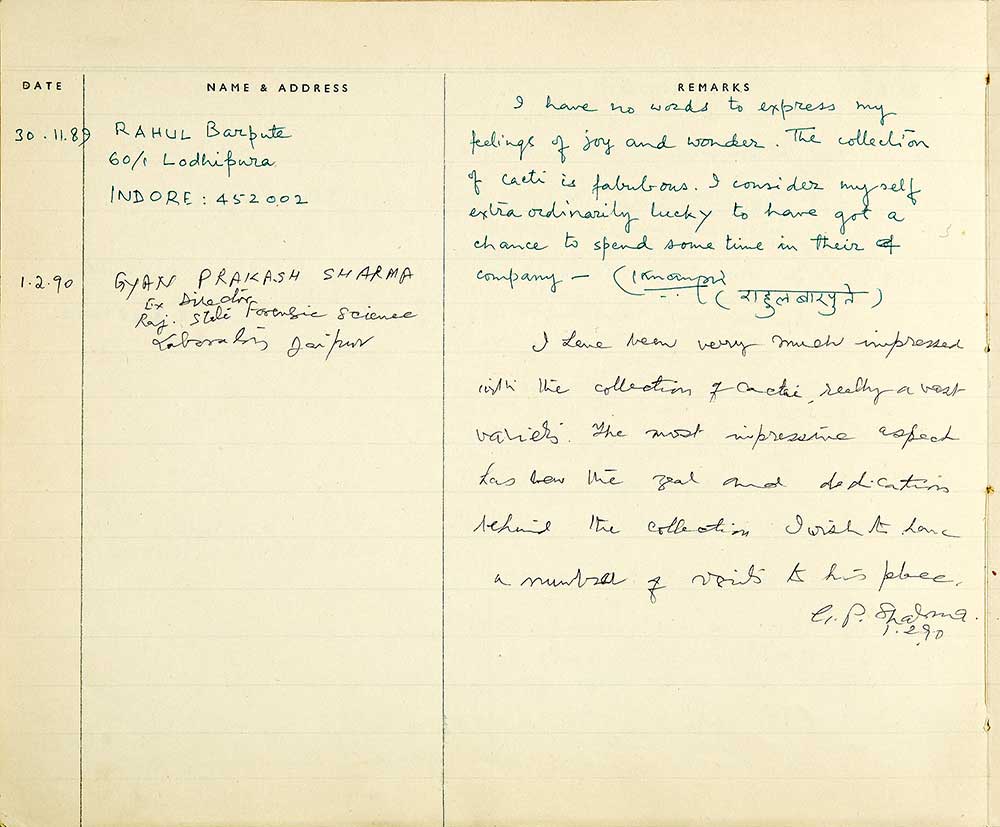 DATE
NAME & ADDRESS
REMARKS
30.11.89
RAHUL Barpute
60/1 Lodhipura
INDORE: 452002
I have no words to express my
feelings of joy and wonder. The collection
of cacti is fabulous. I consider myself
extraordinarily lucky to have got a
chance to spend some time in their
company —
(राहुल बारपुते)
1.2.90
GYAN PRAKASH SHARMA
Ex Director
Raj. State Forensic Science
Laboratory Jaipur
I have been very much impressed
with the collection of cactai, really a vast
variety. The most impressive aspect
has been the zeal and dedication
behind the collection I wish to have
a number of visits to his place.
G. P. Sharma.
1.2.90